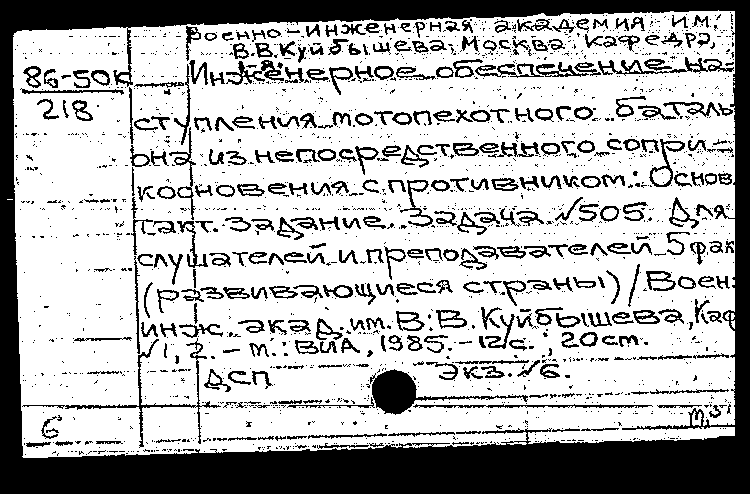 Военно-инженерная академия им.
В.В.Куйбышева, Москва. Кафедра,
1-я.
86-50к
218
Инженерное обеспечение на-
ступления мотопехотного баталь
она из непосредственного сопри-
косновения с противником: Основ.
такт. задание. Задача №505. Для
слушателей и преподавателей 5 фак
(развивающиеся страны) / Воен.
инж. акад. им. В.В. Куйбышева, Каф
№1, 2. - М.: ВИА, 1985. - 12 с.; 20 см.
ДСП экз. №6.
6